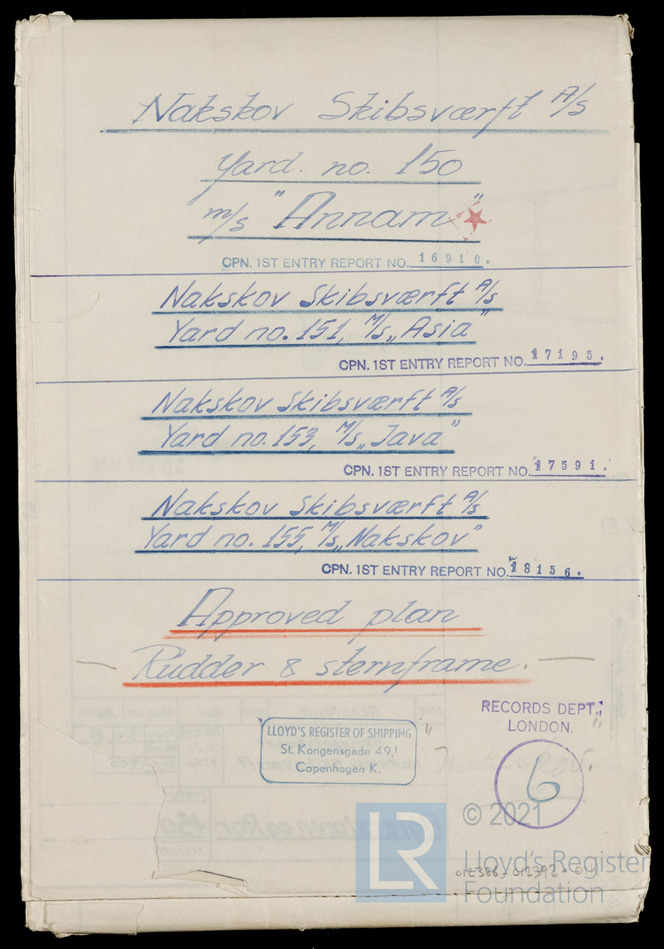 Nakskov Skibsværft A/S
Yard. no. 150
m/s "Annam"
CPN. 1ST ENTRY REPORT NO. 16910.
Nakskov Skibsværft A/S
Yard no. 151, M/S „Asia"
CPN. 1ST ENTRY REPORT NO. 17195.
Nakskov Skibsværft A/S
Yard no. 153, M/S „Java"
CPN. 1ST ENTRY REPORT NO. 17591.
Nakskov Skibsværft A/S
Yard no. 155, M/S „Nakskov"
CPN. 1ST ENTRY REPORT NO. 18156.
Approved plan
Rudder & sternframe.
RECORDS DEPT.
LONDON.
LLOYD'S REGISTER OF SHIPPING
St. Kongensgade 49,1
Copenhagen K.
6
LR
© 2021
Lloyd's Register
Foundation